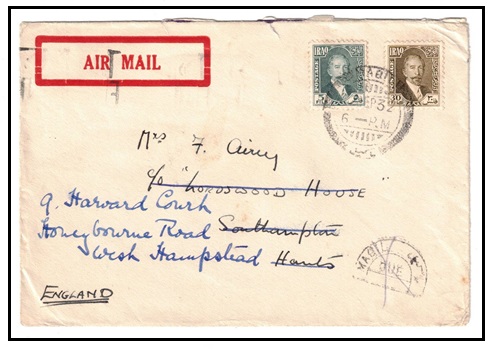 AIR MAIL
IRAQ
IRAQ
POSTAGE
POSTAGE
6 — P.M
Mrs F. Airey
c/o "LORDSWOOD HOUSE"
9. Harward Court
Honeybourne Road Southampton
West Hampstead Hants
ENGLAND